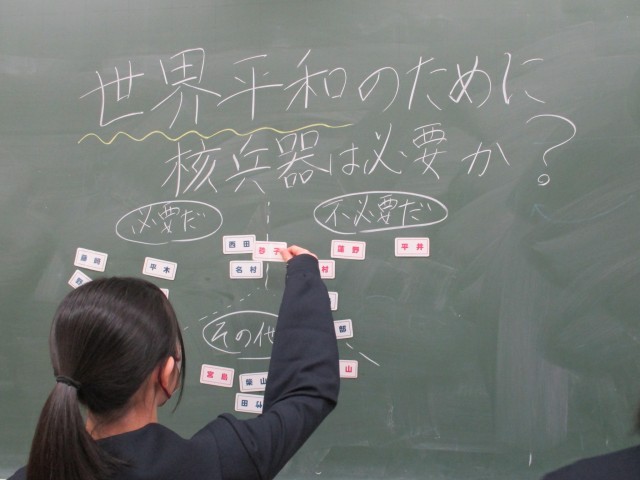 世界平和のために
核兵器は必要か？
必要だ
不必要だ
西田
砂子
蓮野
平井
藤崎
平木
名村
村
その他
部
宮嶌
葉山
山
田